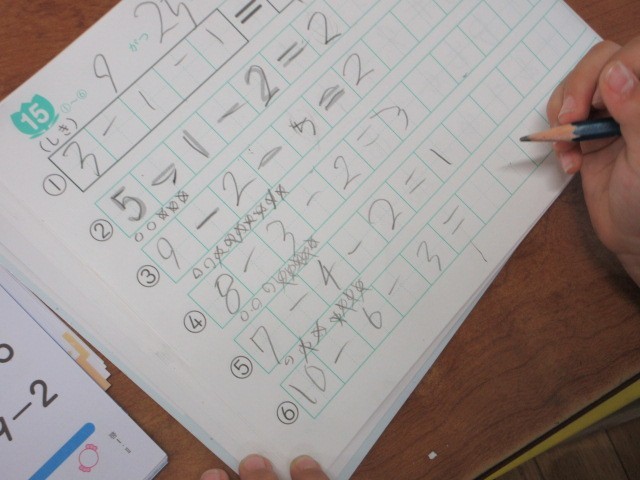 9 がつ 24
15 ①~⑥
(しき)
① 3-1-1=
② 5-1-2=2
③ 9-2-5=2
④ 8-3-2=3
⑤ 7-4-2=1
⑥ 10-6-3=1
9-2